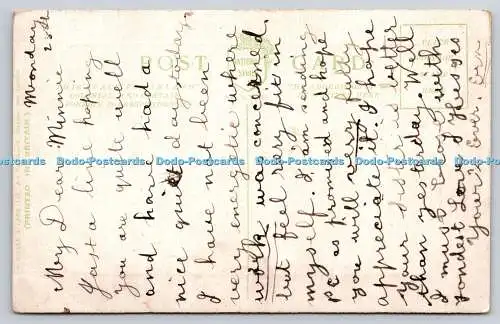 Monday
28th
My Dear Minnie
Just a line hoping
you are quite well
and have had a
nice quiet day today.
I have not been
very energetic where
work was concerned
but feel very fit in
myself. I am sending
PC as promised and hope
you will very fully
appreciate it. I hope
your sister is better
than yesterday. Well
I must close with
fondest Love & kisses
Yours Ever.
POST CARD
(PRINTED IN GREAT BRITAIN)
Dodo-Postcards Dodo-Postcards Dodo-Postcards Dodo-Postcards Dodo-Postcards Dodo-Postcards